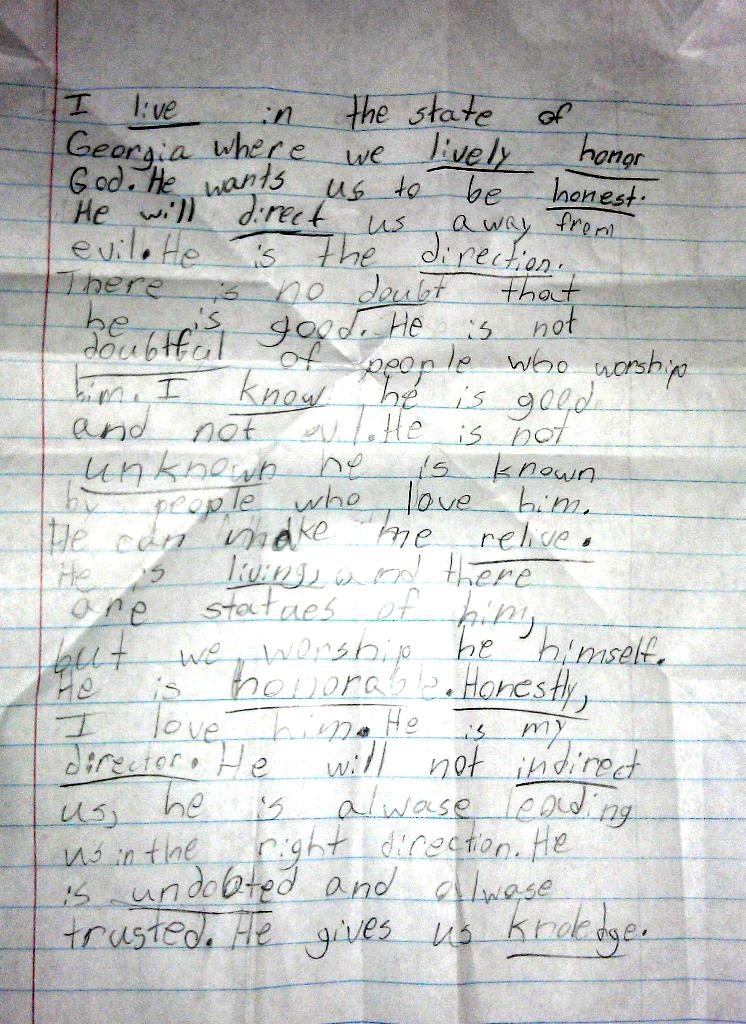 I live in the state of
Georgia where we lively honor
God. He wants us to be honest.
He will direct us away from
evil. He is the direction.
There is no doubt that
he is good. He is not
doubtful of people who worship
him. I know he is good
and not evil. He is not
unknown he is known
by people who love him.
He can make me relive.
He is living, and there
are statues of him,
but we worship he himself.
He is honorable. Honestly,
I love him. He is my
director. He will not indirect
us, he is alwase leading
us in the right direction. He
is undobted and alwase
trusted. He gives us knoledge.